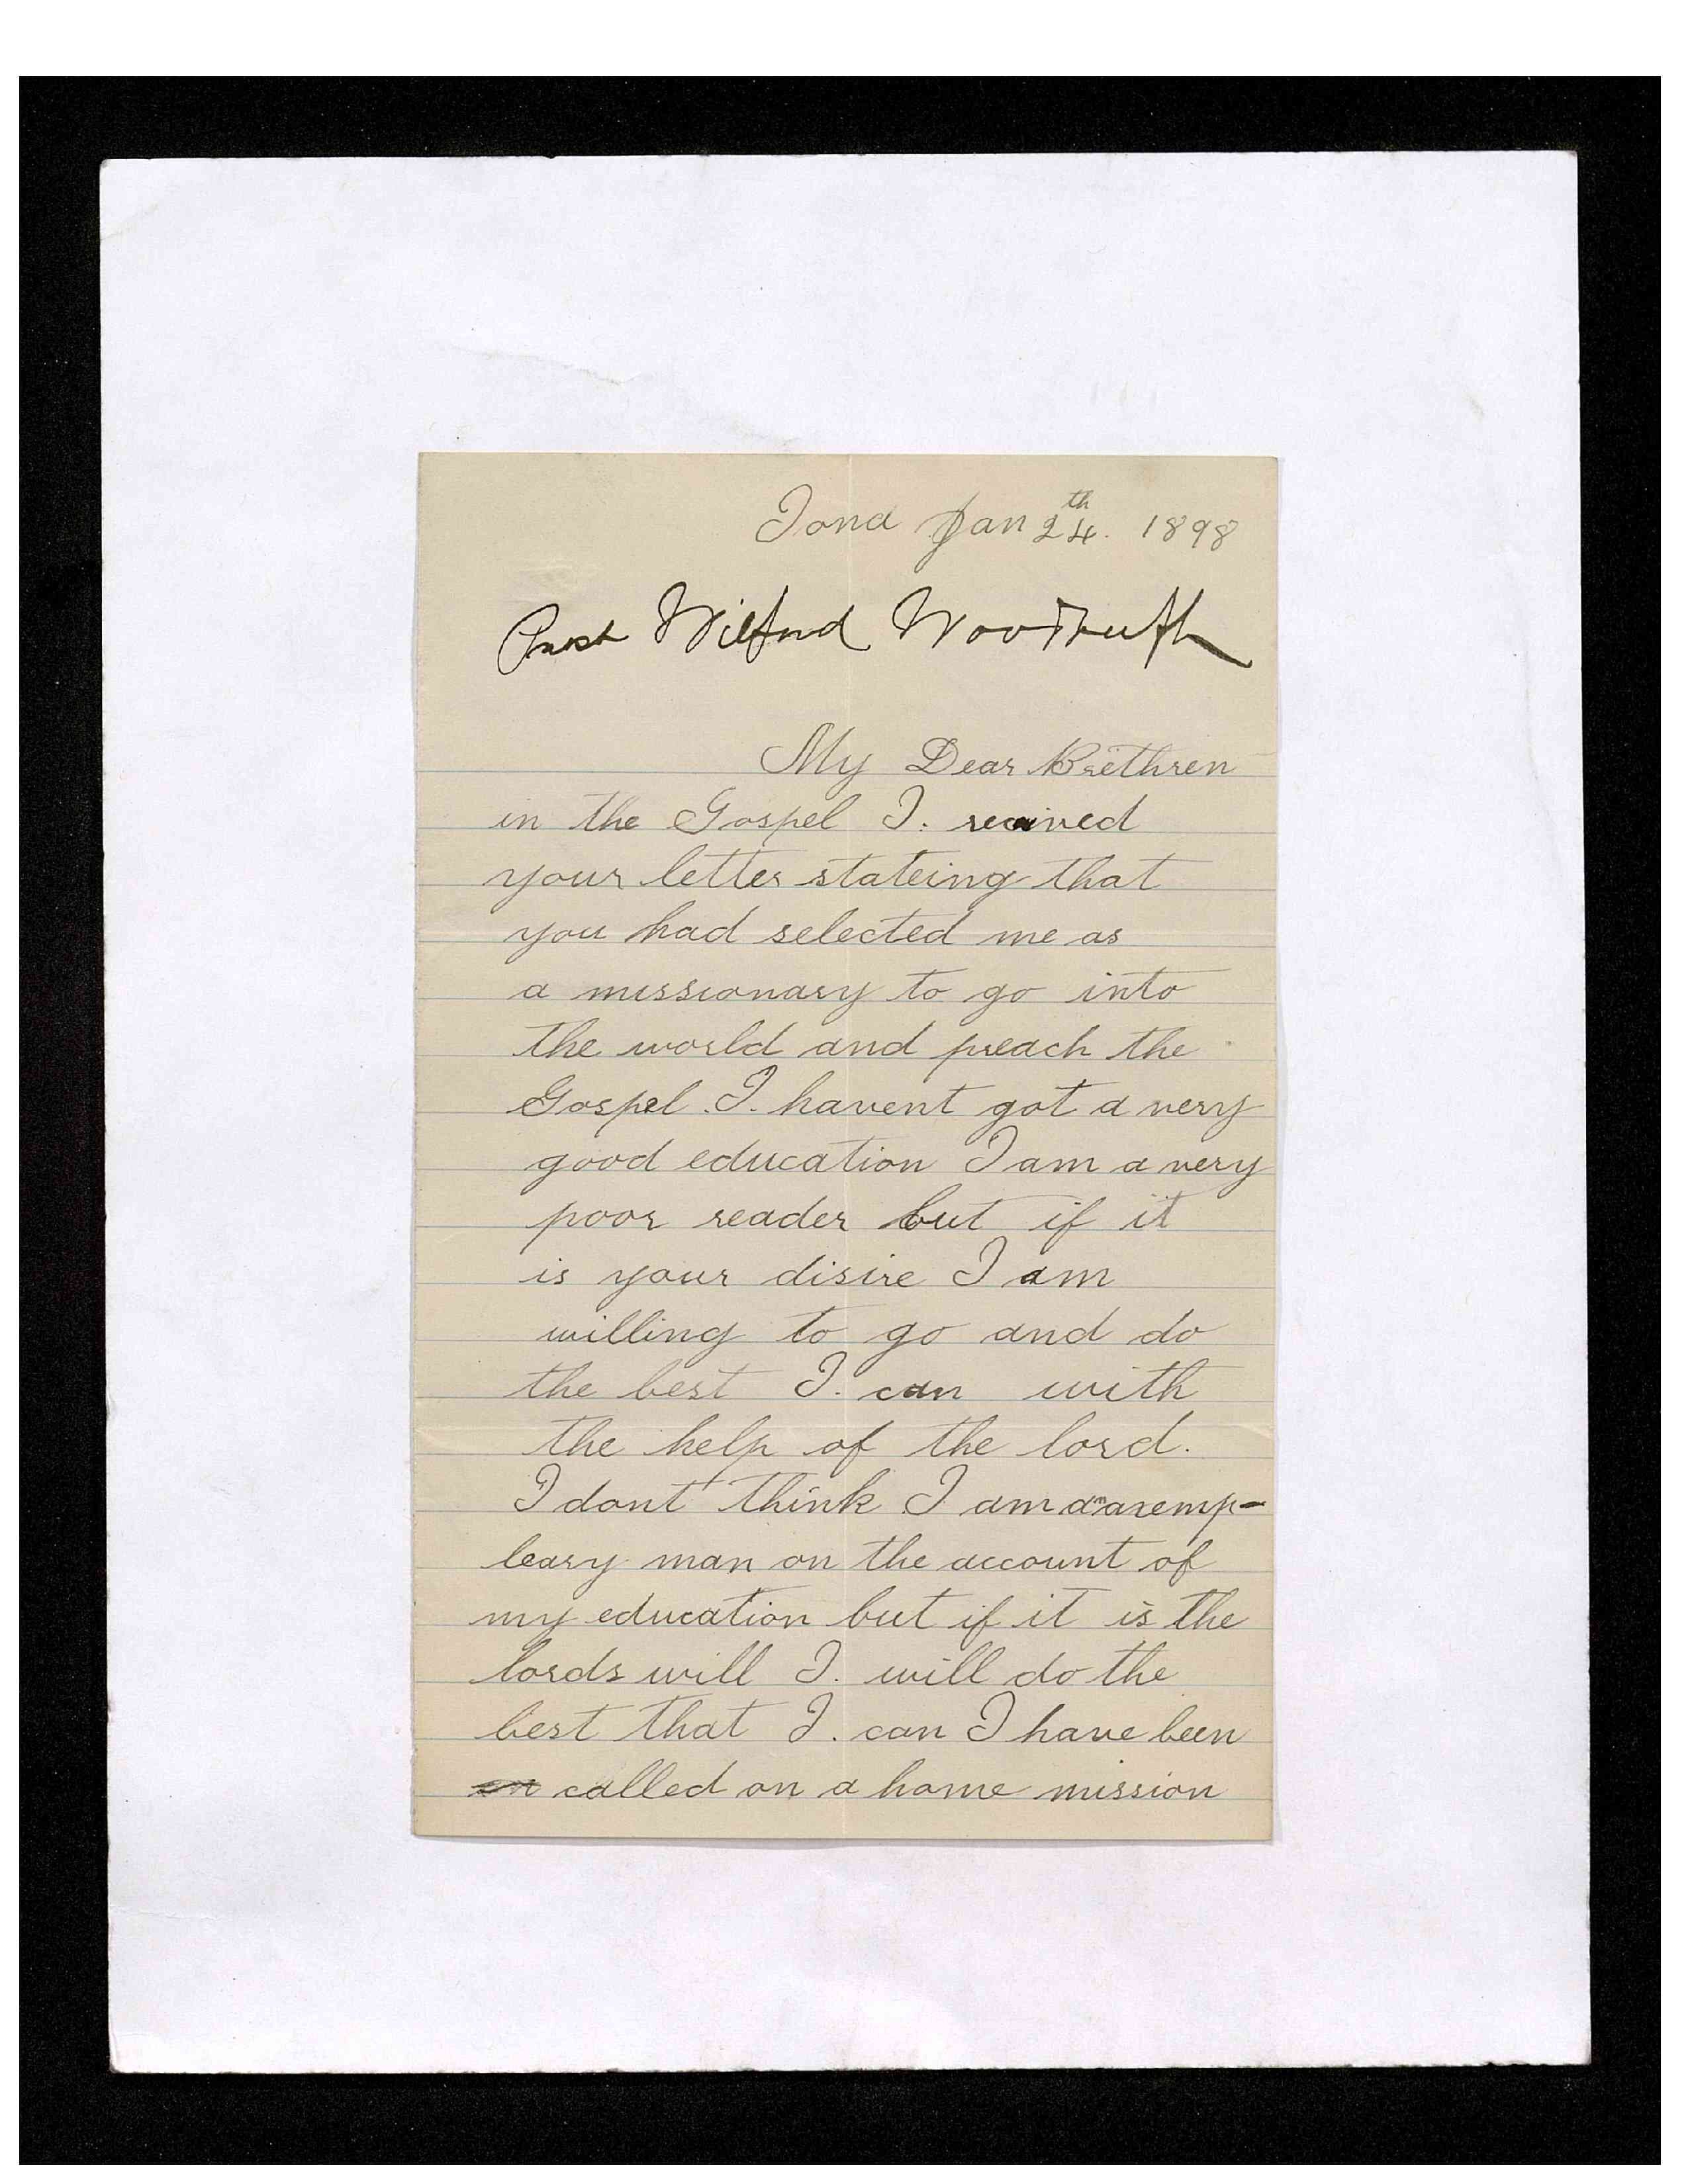 Iona Jan 24th. 1898
Prest Wilford Woodruff
My Dear Brethren
in the Gospel I. received
your letter stateing that
you had selected me as
a missionary to go into
the world and preach the
Gospel. I. havent got a very
good education I am a very
poor reader but if it
is your disire I am
willing to go and do
the best I. can with
the help of the lord.
I dont think I am an axemp-
leary man on the account of
my education but if it is the
lords will I. will do the
best that I. can I have been
called on a home mission